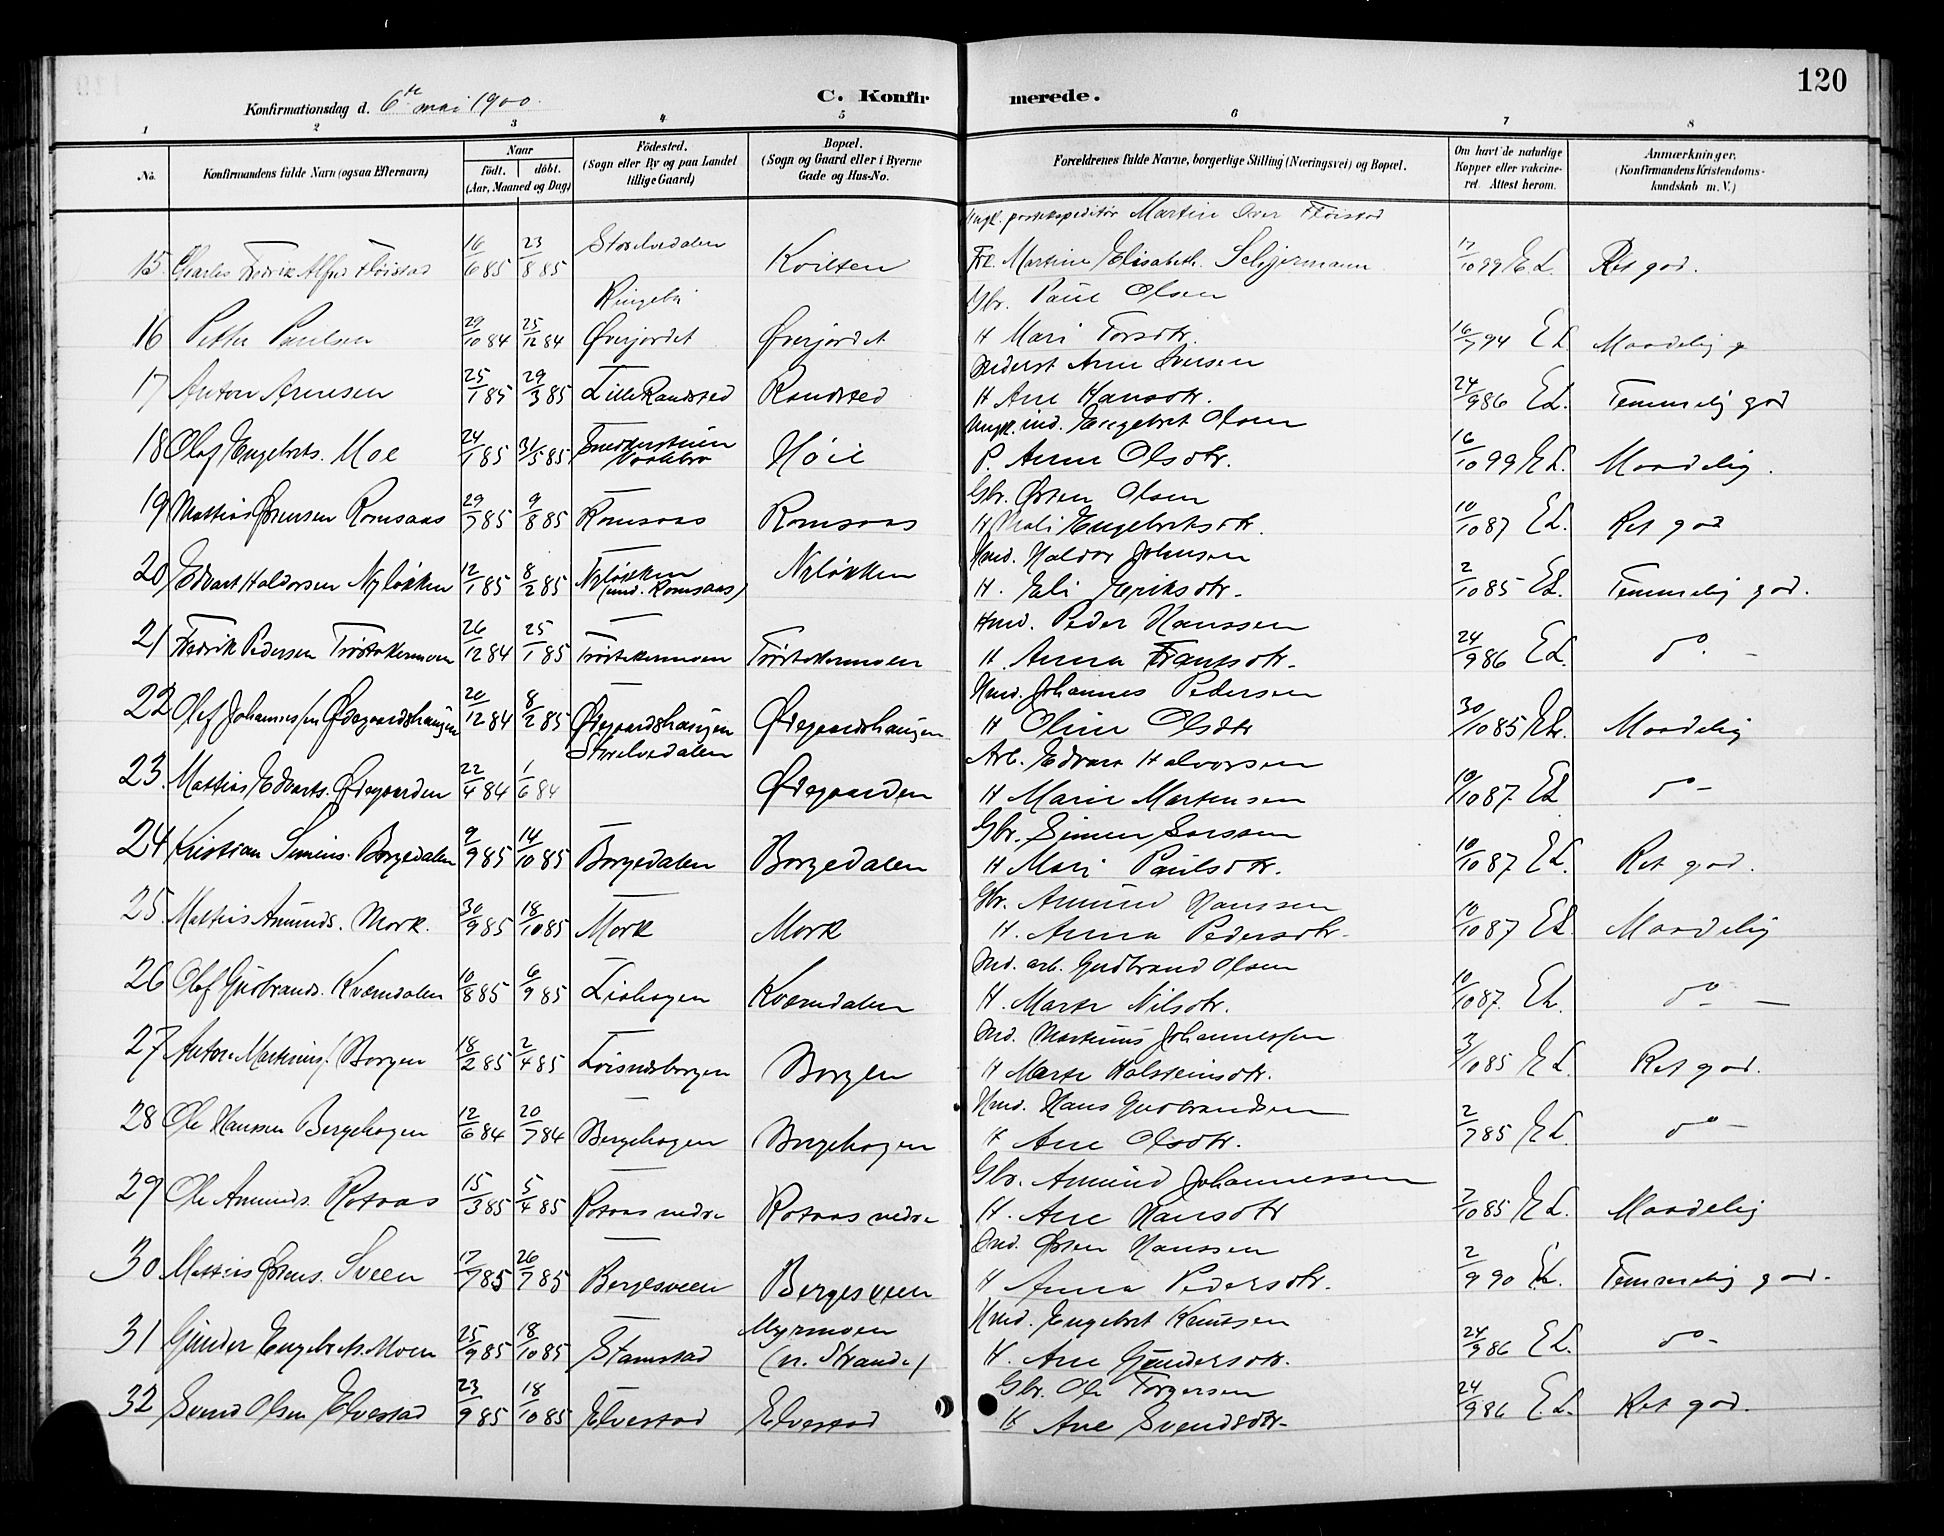 120
Konfirmationsdag d. 6te mai 1900.
C. Konfirmerede.
1 2 3 4 5 6 7 8
No.
Konfirmandens fulde Navn (ogsaa Efternavn)
Naar
födt. döbt.
(Aar, Maaned og Dag)
Födested.
(Sogn eller By og paa Landet
tillige Gaard)
Bopæl.
(Sogn og Gaard eller i Byerne
Gade og Hus-No.
Forældrenes fulde Navne, borgerlige Stilling (Næringsvei) og Bopæl.
Om havt de naturlige
Kopper eller vakcine-
ret. Attest herom.
Anmærkninger.
(Konfirmandens Kristendoms-
kundskab m. V.)
Ungk. postekspeditör Martin Iver Fløistad
15 Charles Fredrik Alfred Fløistad 16/6 85 23/8 85 Storelvedalen Koilten Fr. Martine Elisabeth 17/10 99 E.L. Ret god.
Ringebu Gbr. Paul Olsen
16 Petter Paulsen 29/10 84 25/12 84 Øverjordet Øverjordet H Mari Torsdtr. 16/7 94 E L. Maadelig
Inderst Arne Iversen
17 Anton Arnesen 25/1 85 29/3 85 Lille Randsted Randsted H Ane Hansdtr. 24/9 86 E L. Temmelig god
Ungk. ind. Engebret Olsen
18 Olaf Engebrets. Moe 24/1 85 31/5 85 Vaalebro Høie P. Anne Olsdtr. 16/10 99 E L. Maadelig.
Gbr. Østen Olsen
19 Mathias Østensen Romsaas 29/7 85 9/8 85 Romsaas Romsaas H Mali Engebretsdtr. 10/10 87 E L. Ret god
Hmd. Haldor Johnsen
20 Edvart Haldorsen Nyløkken 12/1 85 8/2 85 Nyløkken (und. Romsaas) Nyløkken H. Eli Eriksdtr. 2/10 85 E L. Temmelig god.
Hmd. Peder Hanssen
21 Fredrik Pedersen Trøstakermoen 26/12 84 25/1 85 Trøstakermoen Trøstakermoen H. Anna Frantsdtr. 24/9 86 E L. do. -
Hmd. Johannes Pedersen
22 Olef Johannessen Ødegaardshaugen 20/12 84 8/2 85 Ødegaardshaugen Ødegaardshaugen H Oline Olsdtr 30/10 85 E L. Maadelig
Storelvedalen Arb. Edvart Halvorsen
23. Mathias Edvarts. Ødegaarden 22/4 84 1/6 84 Ødegaarden H Marie Martensen 10/10 87. E L do -
Gbr. Simen Larssen
24 Kristian Simens. Borgedalen 9/9 85 14/10 85 Borgedalen Borgedalen H Mari Paulsdtr. 10/10 87 E L. Ret god.
Gbr. Amund Hanssen
25. Mathis Amunds. Mork. 30/9 85 18/10 85 Mork Mork H. Anna Pedersdtr. 10/10 87 E L. Maadelig
Ind. arb. Gudbrand Olsen
26 Olaf Gudbrands. Kværndalen 10/8 85 6/9 85 Liehagen Kværndalen H. Marte Nilsdtr. 10/10 87. E L. do -
Ind. Martinus Johannessen
27 Anton Martinus. Borgen 18/2 85 2/4 85 Borgen H Marte Holsteinsdtr. 3/10 85 E L. Ret god.
Hmd. Hans Gudbrandsen
28 Ole Hanssen Bergehagen 12/6 84 20/7 84 Bergehagen Bergehagen H Ane Olsdtr. 2/7 85 E L. do -
Gbr. Amund Johannessen
29 Ole Amunds. Rotaas 15/3 85 5/4 85 Rotaas nedre Rotaas nedre H. Ane Hansdtr 2/10 85 E L. Maadelig
Ind. Østen Hanssen
30 Mathis Østens. Sveen 17/7 85 26/7 85 Bergesveen Bergesveen H Anna Pedersdtr. 2/9 90 E L. Temmelig god.
Hmd. Engebret Knutsen
31 Gunder Engebrets. Moen 25/9 85 18/10 85 Stamstad Myrmoen (n. Strande) H. Ane Gundersdtr. 24/9 86 E L. do -
Gbr. Ole Torgersen
32 Svend Olsen Elvestad 23/9 85 18/10 85 Elvestad Elvestad H Ane Svendsdtr. 24/9 86 E. L. Ret god.